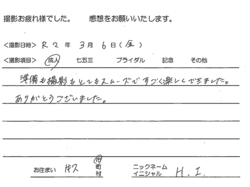 撮影お疲れ様でした。　感想をお願いいたします。
<撮影日時> R 2 年 3 月 6 日 (金)
<撮影項目> 成人 七五三 ブライダル 記念 その他
準備も撮影もとてもスムーズですごく楽しくできました。
ありがとうございました。
お住まい 市 町 村 ニックネーム イニシャル H. I.